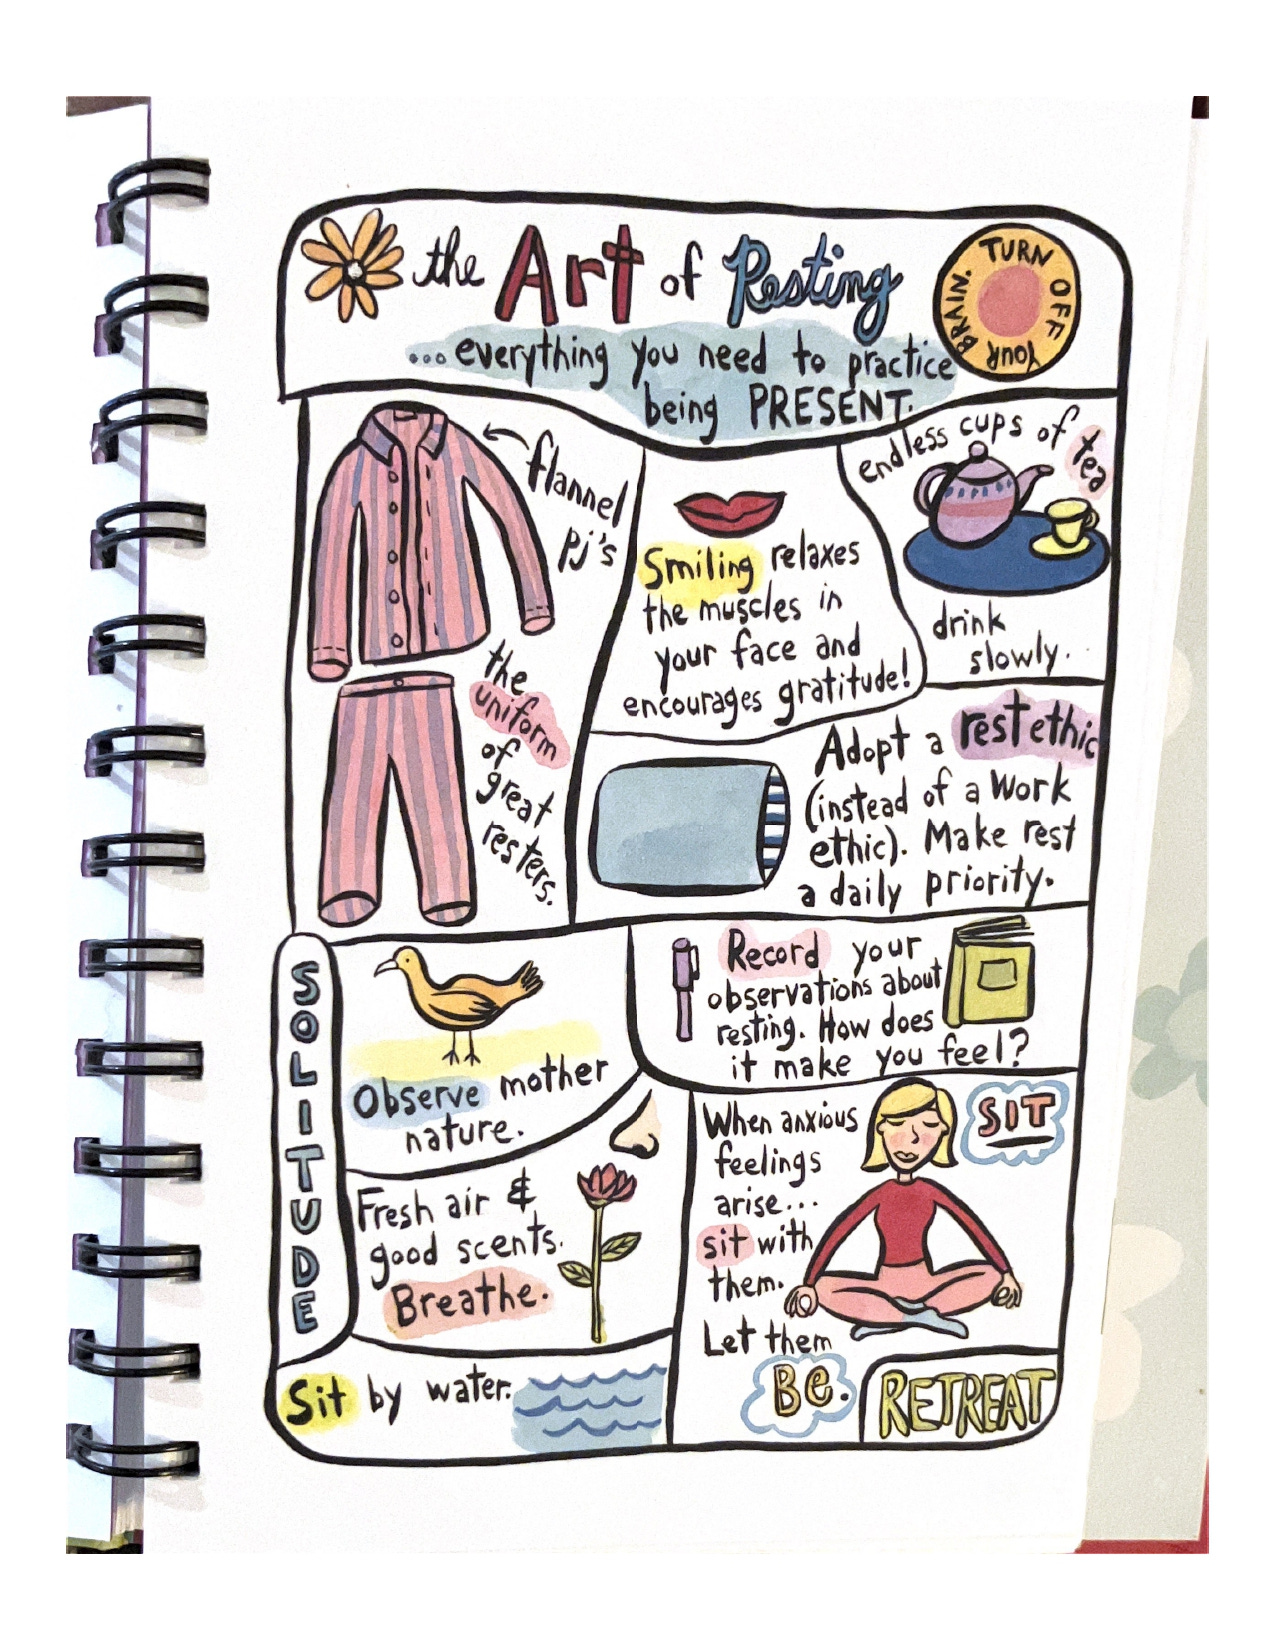 the Art of Resting
...everything you need to practice
being PRESENT.
TURN OFF YOUR BRAIN.
flannel
pj's
the
uniform
of
great
resters.
Smiling relaxes
the muscles in
your face and
encourages gratitude!
endless cups of tea
drink
slowly.
Adopt a rest ethic
(instead of a work
ethic). Make rest
a daily priority.
SOLITUDE
Observe mother
nature.
Record your
observations about
resting. How does
it make you feel?
Fresh air &
good scents.
Breathe.
When anxious
feelings
arise...
sit with
them.
Let them
Be.
SIT
Sit by water.
RETREAT